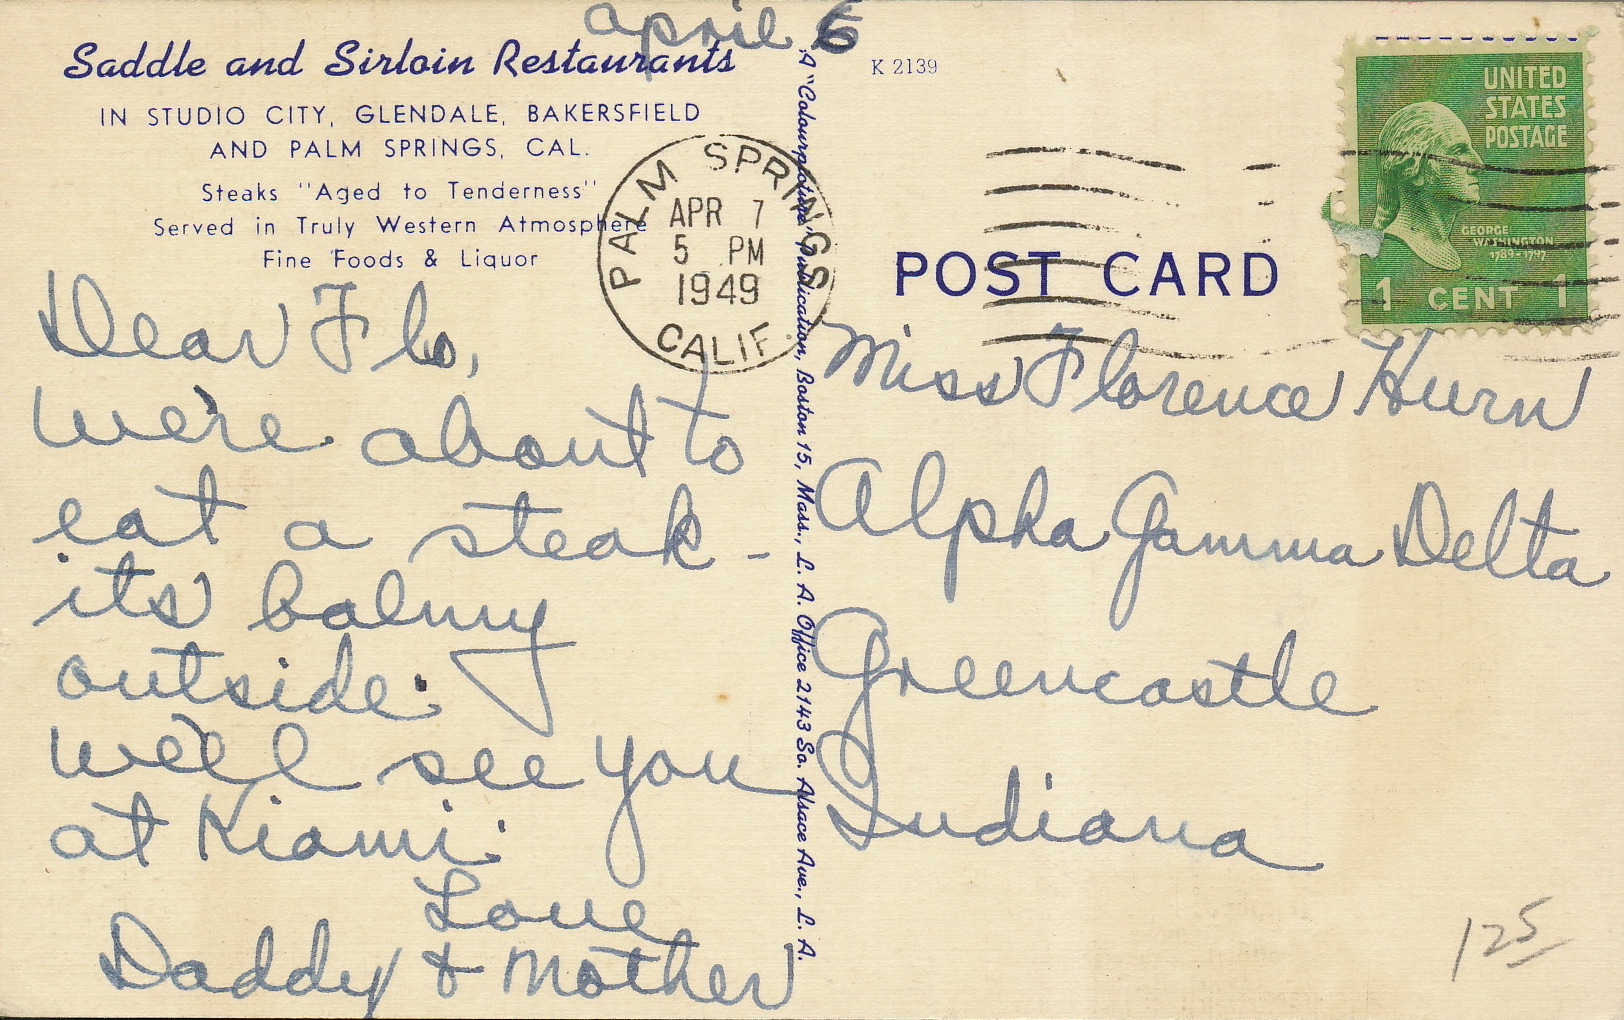 April 6
Saddle and Sirloin Restaurants
IN STUDIO CITY, GLENDALE, BAKERSFIELD
AND PALM SPRINGS, CAL.
Steaks "Aged to Tenderness"
Served in Truly Western Atmosphere
Fine Foods & Liquor
Dear Flo,
We're about to
eat a steak -
its balmy
outside.
We'll see you
at Kiami.
Love
Daddy & Mother
PALM SPRINGS
APR 7
5 PM
1949
CALIF.
A "Colourpicture" Publication, Boston 15, Mass., L. A. Office 2143 So. Alsace Ave., L. A.
K 2139
POST CARD
UNITED
STATES
POSTAGE
GEORGE
WASHINGTON
1789-1797
1 CENT 1
Miss Florence Hurn
Alpha Gamma Delta
Greencastle
Indiana
125